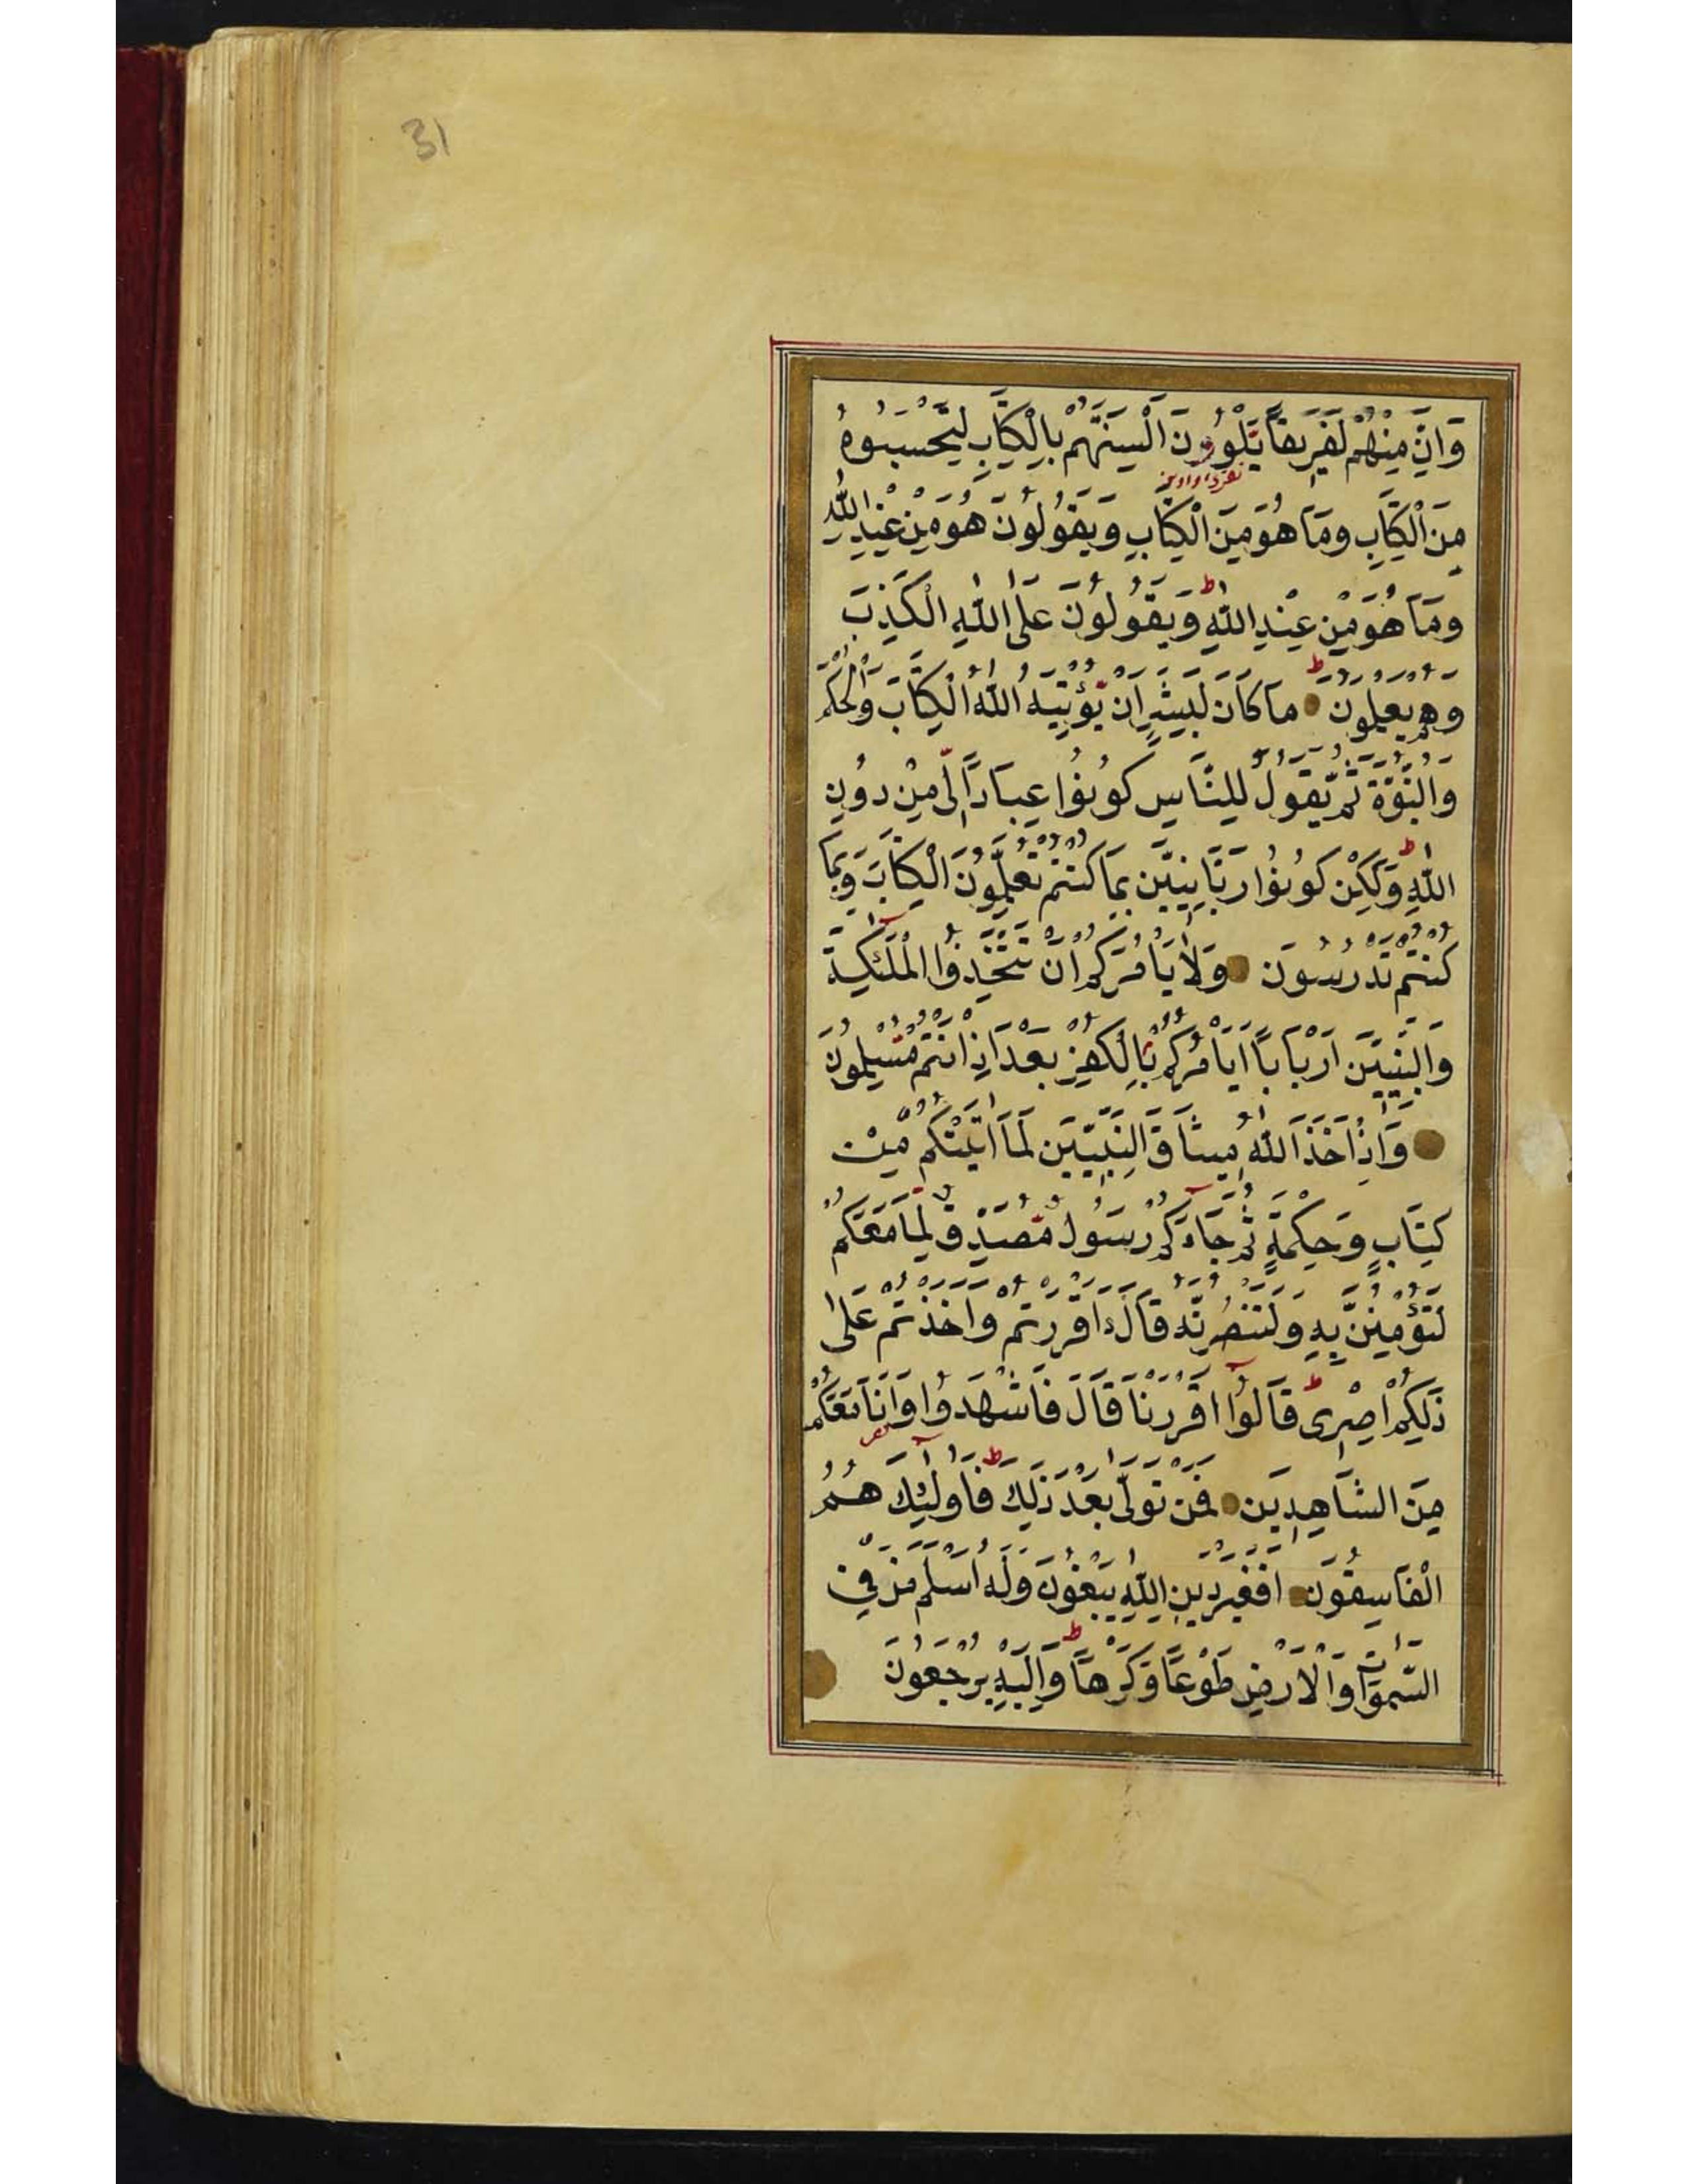 31
وَاِنَّ مِنْهُمْ لَفَرِيقًا يَلْوُونَ اَلْسِنَتَهُمْ بِالْكِتَابِ لِتَحْسَبُوهُ
مِنَ الْكِتَابِ وَمَا هُوَ مِنَ الْكِتَابِ وَيَقُولُونَ هُوَ مِنْ عِنْدِ اللّٰهِ
وَمَا هُوَ مِنْ عِنْدِ اللّٰهِ ط وَيَقُولُونَ عَلَى اللّٰهِ الْكَذِبَ
وَهُمْ يَعْلَمُونَ ط مَا كَانَ لِبَشَرٍ اَنْ يُؤْتِيَهُ اللّٰهُ الْكِتَابَ وَالْحُكْمَ
وَالنُّبُوَّةَ ثُمَّ يَقُولَ لِلنَّاسِ كُونُوا عِبَادًا لِّى مِنْ دُونِ
اللّٰهِ وَلٰكِنْ كُونُوا رَبَّانِيِّينَ بِمَا كُنْتُمْ تُعَلِّمُونَ الْكِتَابَ وَبِمَا
كُنْتُمْ تَدْرُسُونَ وَلَا يَأْمُرَكُمْ اَنْ تَتَّخِذُوا الْمَلٰٓئِكَةَ
وَالنَّبِيِّينَ اَرْبَابًا اَيَأْمُرُكُمْ بِالْكُفْرِ بَعْدَ اِذْ اَنْتُمْ مُسْلِمُونَ
وَاِذْ اَخَذَ اللّٰهُ مِيثَاقَ النَّبِيِّينَ لَمَا اٰتَيْتُكُمْ مِنْ
كِتَابٍ وَحِكْمَةٍ ثُمَّ جَاءَكُمْ رَسُولٌ مُصَدِّقٌ لِمَا مَعَكُمْ
لَتُؤْمِنُنَّ بِهِ وَلَتَنْصُرُنَّهُ قَالَ ءَاَقْرَرْتُمْ وَاَخَذْتُمْ عَلٰى
ذٰلِكُمْ اِصْرِى ط قَالُوا اَقْرَرْنَا قَالَ فَاشْهَدُوا وَاَنَا مَعَكُمْ
مِنَ الشَّاهِدِينَ فَمَنْ تَوَلّٰى بَعْدَ ذٰلِكَ فَاُولٰٓئِكَ هُمُ
الْفَاسِقُونَ اَفَغَيْرَ دِينِ اللّٰهِ يَبْغُونَ وَلَهُ اَسْلَمَ مَنْ فِى
السَّمٰوَاتِ وَالْاَرْضِ طَوْعًا وَكَرْهًا وَاِلَيْهِ يُرْجَعُونَ